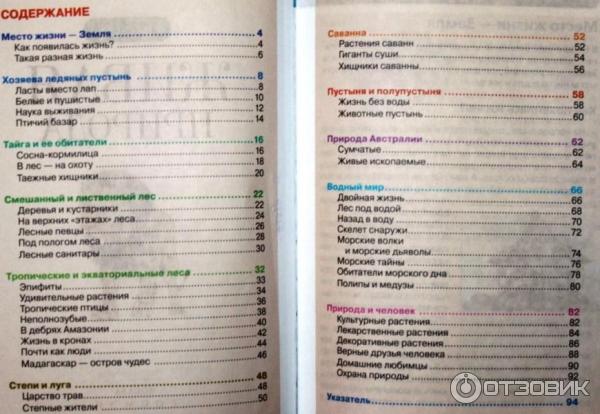 СОДЕРЖАНИЕ
Место жизни — Земля 4
Как появилась жизнь? 4
Такая разная жизнь 6
Хозяева ледяных пустынь 8
Ласты вместо лап 8
Белые и пушистые 10
Наука выживания 12
Птичий базар 14
Тайга и ее обитатели 16
Сосна-кормилица 16
В лес — на охоту 18
Таежные хищники 20
Смешанный и лиственный лес 22
Деревья и кустарники 22
На верхних «этажах» леса 24
Лесные певцы 26
Под пологом леса 28
Лесные санитары 30
Тропические и экваториальные леса 32
Эпифиты 33
Удивительные растения 34
Тропические птицы 36
Неполнозубые 38
В дебрях Амазонии 40
Жизнь в кронах 42
Почти как люди 44
Мадагаскар — остров чудес 46
Степи и луга 48
Царство трав 48
Степные жители 50
Саванна 52
Растения саванн 52
Гиганты суши 54
Хищники саванны 56
Пустыня и полупустыня 58
Жизнь без воды 58
Животные пустынь 60
Природа Австралии 62
Сумчатые 62
Живые ископаемые 64
Водный мир 66
Двойная жизнь 66
Лес под водой 68
Назад в воду 70
Скелет снаружи 72
Морские волки
и морские дьяволы 74
Морские тайны 76
Обитатели морского дна 78
Полипы и медузы 80
Природа и человек 82
Культурные растения 82
Лекарственные растения 84
Декоративные растения 86
Верные друзья человека 88
Домашние любимцы 90
Охрана природы 92
Указатель 94
ОТЗОВИК